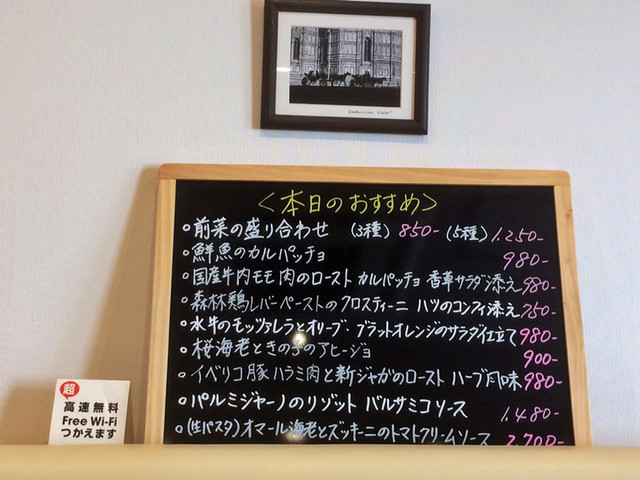 <本日のおすすめ>
○前菜の盛り合わせ (3種) 850- (5種) 1.250-
○鮮魚のカルパッチョ 980-
○国産牛内モモ肉のロースト カルパッチョ 香草サラダ添え 980-
○森林鶏レバーペーストのクロスティーニ ハツのコンフィ添え 750-
○水牛のモッツァレラとオリーブ・ブラッドオレンジのサラダ仕立て 980-
○桜海老ときの子のアヒージョ 900-
○イベリコ豚ハラミ肉と新ジャガのロースト ハーブ風味 980-
○パルミジャーノのリゾット バルサミコソース 1.480-
○(生パスタ)オマール海老とズッキーニのトマトクリームソース 2.700-
超
高速無料
Free Wi-Fi
つかえます